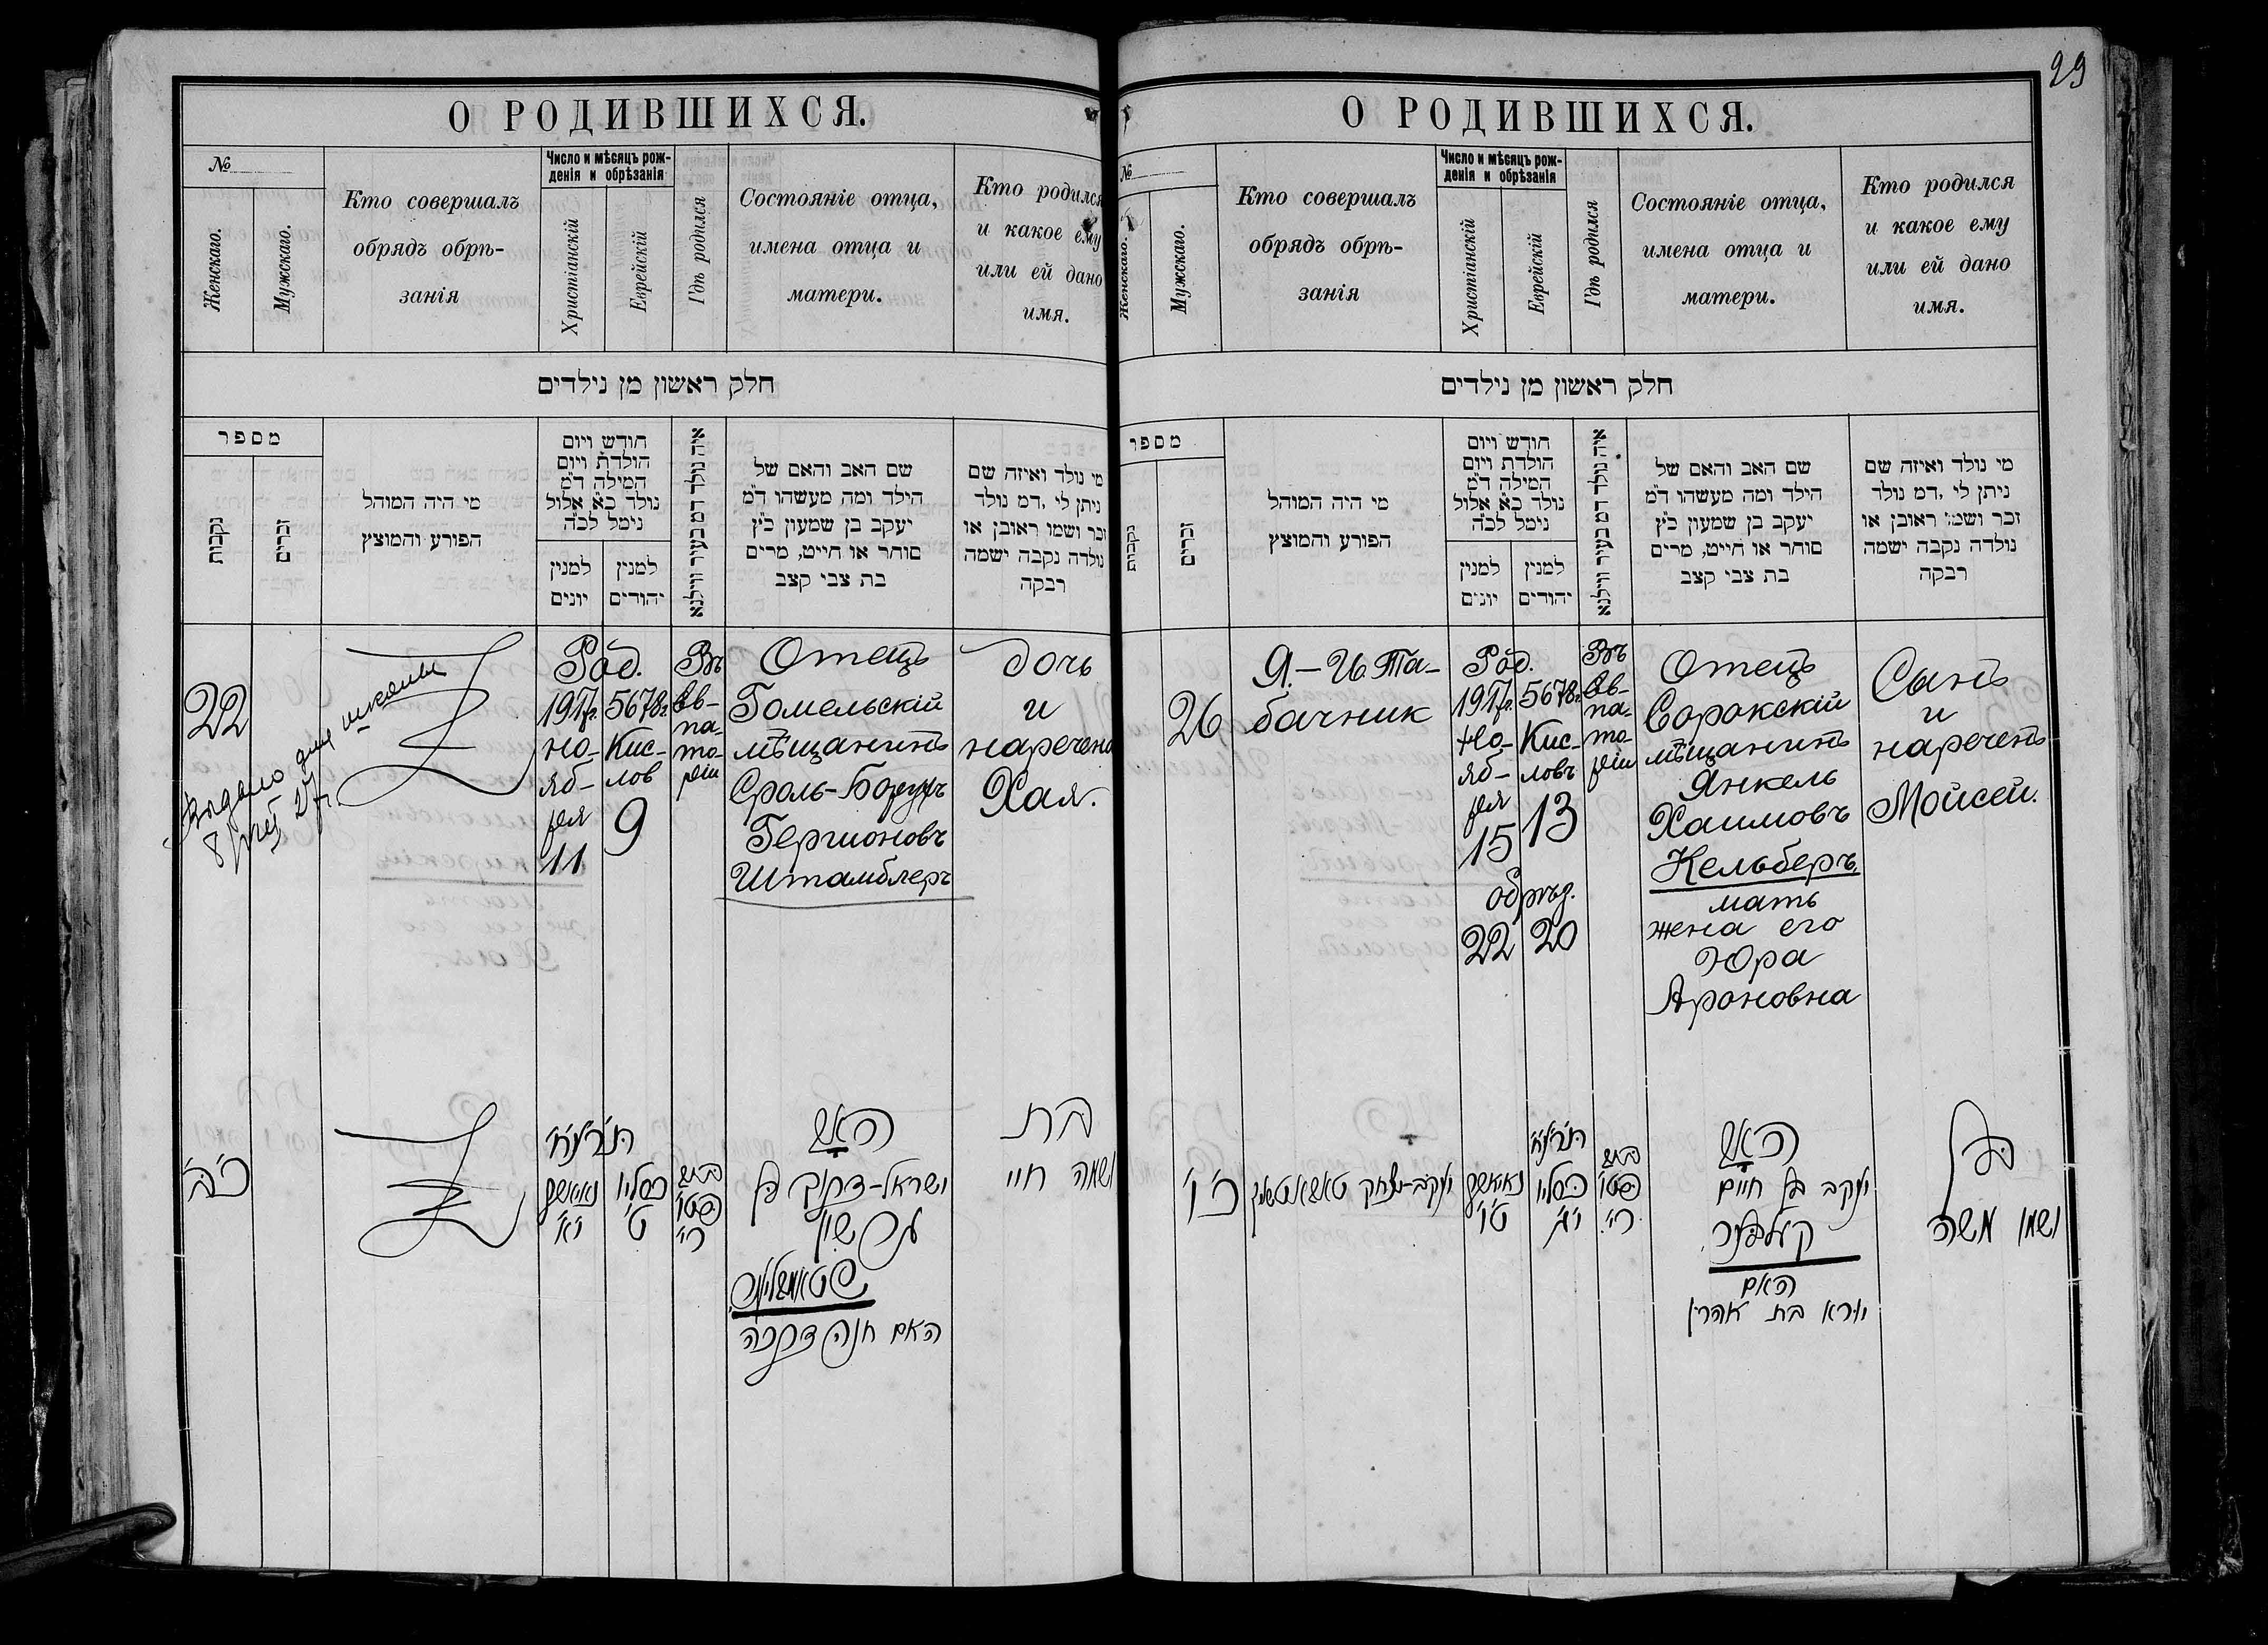 29
О РОДИВШИХСЯ.
№
Женскаго.
Мужскаго.
Кто совершалъ
обрядъ обрѣ-
занія
Число и мѣсяцъ рож-
денія и обрѣзанія
Христіанскій
Еврейскій
Гдѣ родился
Состояніе отца,
имена отца и
матери.
Кто родился
и какое ему
или ей дано
имя.
חלק ראשון מן נילדים
מספר
נקבות
זכרים
מי היה המוהל
הפורע והמוצץ
חודש ויום
הולדת ויום
המילה ד״מ
נולד כ״א אלול
נימל לכ״ה
למנין
יונים
למנין
יהודים
איה נולד דמ בעיר ווילנא
שם האב והאם של
הילד ומה מעשהו ד״מ
יעקב בן שמעון כ״ץ
סוחר או חייט, מרים
בת צבי קצב
מי נולד ואיזה שם
ניתן לי, דמ נולד
זכר ושמו ראובן או
נולדה נקבה ישמה
רבקה
22
Выдано для школы
8 27 г.
Род.
1917г.
но-
яб-
ря
11
5678г.
Кис-
лов
9
Въ
Ев-
па-
то-
ріи
Отецъ
Гомельскій
мѣщанинъ
Сроль-Борухъ
Гершоновъ
Штамблеръ
дочь
и
наречена
Хая.
כ״ה
התרע״ח
נאיאבר
י״א
כסליו
ט׳
האב
ישראל-ברוך בן
גרשון
שטאמבליער
האם חנה
בת
ושמה חיי
О РОДИВШИХСЯ.
№
Женскаго.
Мужскаго.
Кто совершалъ
обрядъ обрѣ-
занія
Число и мѣсяцъ рож-
денія и обрѣзанія
Христіанскій
Еврейскій
Гдѣ родился
Состояніе отца,
имена отца и
матери.
Кто родился
и какое ему
или ей дано
имя.
חלק ראשון מן נילדים
מספר
נקבות
זכרים
מי היה המוהל
הפורע והמוצץ
חודש ויום
הולדת ויום
המילה ד״מ
נולד כ״א אלול
נימל לכ״ה
למנין
יונים
למנין
יהודים
איה נולד דמ בעיר ווילנא
שם האב והאם של
הילד ומה מעשהו ד״מ
יעקב בן שמעון כ״ץ
סוחר או חייט, מרים
בת צבי קצב
מי נולד ואיזה שם
ניתן לי, דמ נולד
זכר ושמו ראובן או
נולדה נקבה ישמה
רבקה
26
Я.-И. Та-
бачник
Род.
1917г.
Но-
яб-
ря
15
5678г.
Кис-
ловъ
13
обрѣз.
22 20
Въ
Ев-
па-
то-
ріи
Отецъ
Сорокскій
мѣщанинъ
Янкель
Хаимовъ
Кельберъ,
мать
жена его
Юра
Ароновна
Сынъ
и
нареченъ
Мойсей.
כ״ו
יעקב-יצחק טאבאטשניק
התרע״ח
נאיאבר
ט״ו
כסליו
י״ג
האב
יעקב בן חיים
קעלבער
האם
יורא בת אהרן
בן
ושמו משה